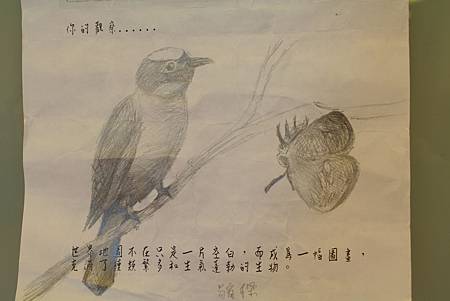 你的觀察......
世界地圖不在只是一片空白，而成為一幅圖畫，
充滿了種類繁多和生氣蓬勃的生物。